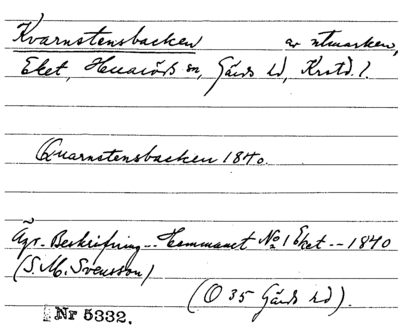 Kvarnstensbacken av utmarken,
Eket, Huaröds sn, Gärds hd, Krstd. l.
Quarnstensbacken 1840.
Äg.- Beskrifning -- Hemmanet No 1 Eket -- 1840
(S. M. Svensson)
(O 35 Gärds hd).
Nr 5332.